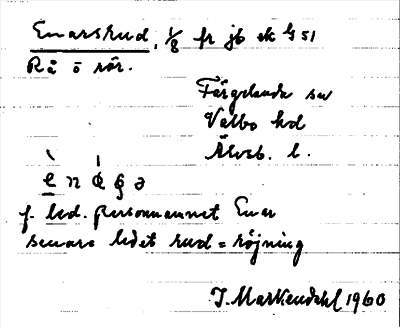 Enarsrud, 1/8 fr jb ek G 51
Rå o rör.
Färgelanda sn
Valbo hd
Älvsb. l.
f. led. personnamnet Enar
senare ledet rud = röjning
J. Markendahl 1960